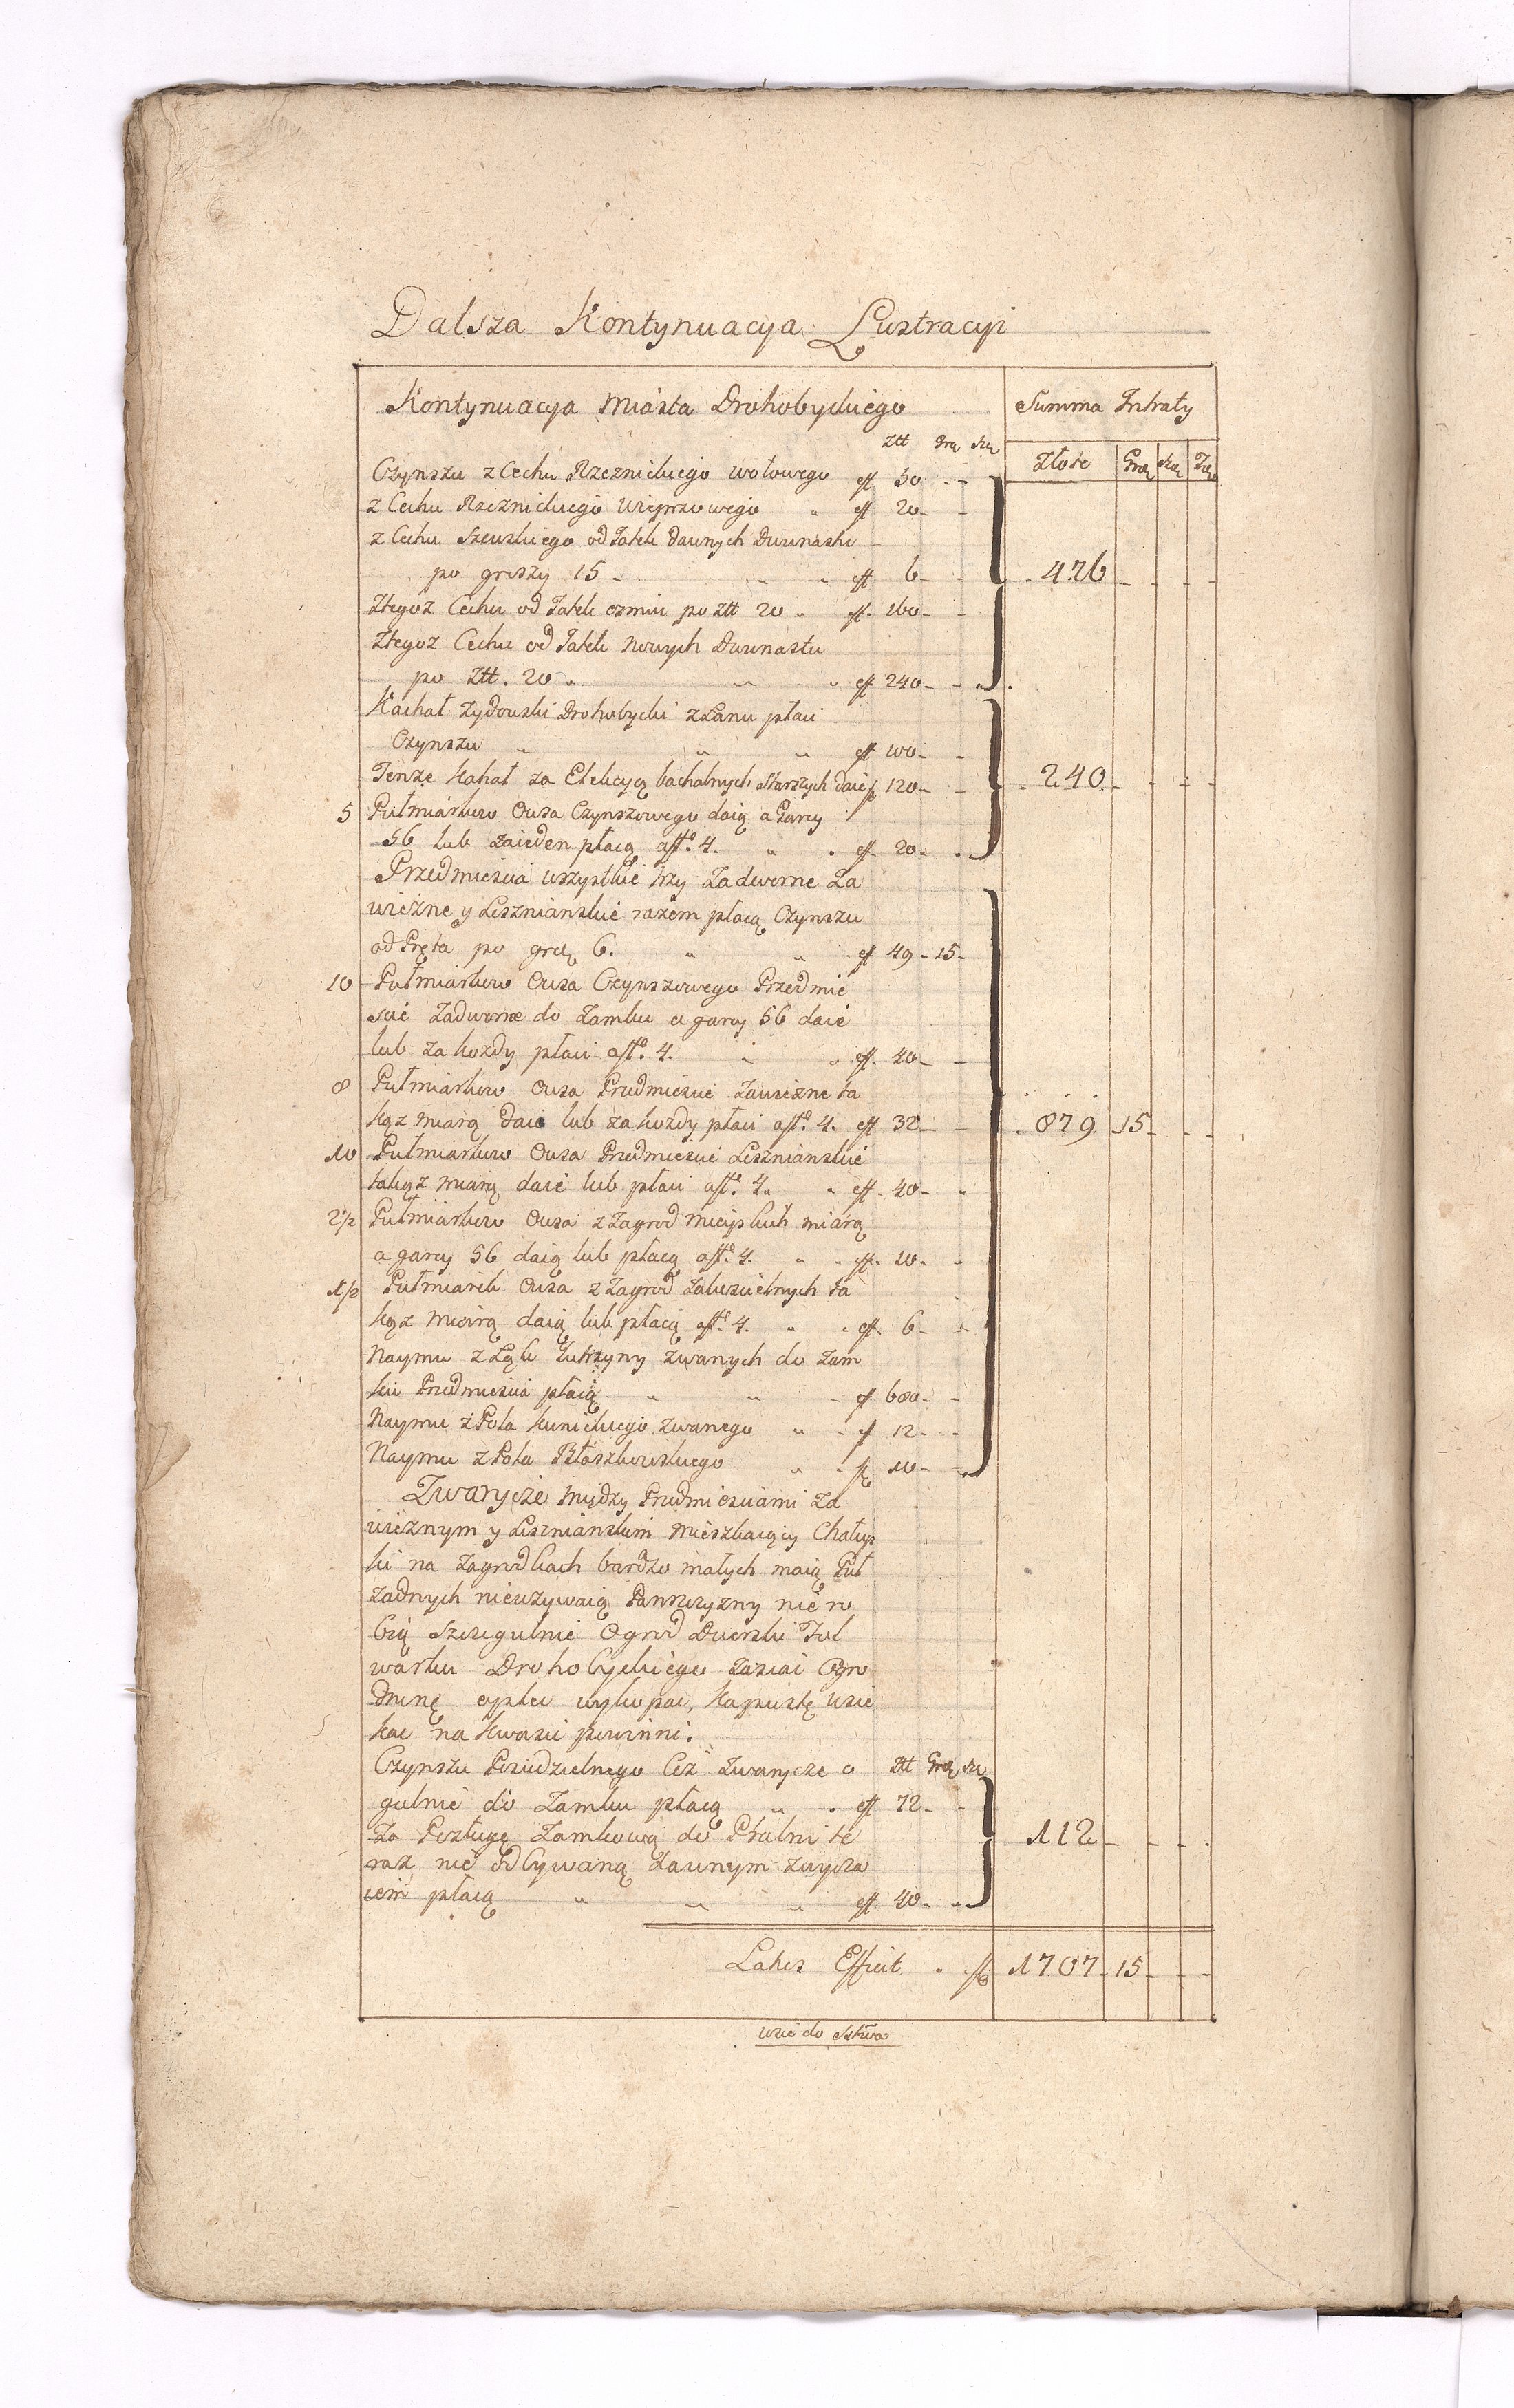 Dalsza Kontynuacya Lustracyi
Kontynuacya Miasta Drohobyckiego
Summa Intraty
Ztt Grą Szą
Złote Grą Szą
Czynszu z Cechu Rzeznickiego wołowego eff 50
z Cechu Rzeznickiego Wieprzowego eff 20
z Cechu Szewskiego od Jatek dawnych Dwunastu
po groszy 15 eff 6
426
Ztegoz Cechu od Jatek osmiu po Ztt 20 eff 160
Ztegoz Cechu od Jatek Nowych Dwunastu
po Ztt. 20 eff 240
Kachał Zydowski Drohobycki z Łanu płaci
Czynszu eff 100
Tenze Kahał za Elekcyą kachalnych Starszych daie 120
240
5 Pułmiarkow Owsa Czynszowego daią a Garcy
56 lub zaieden płacą afflo. 4. eff 20
Przedmiescia wszystkie trzy Zadworne Za
wiezne y Leszniańskie razem płacą Czynszu
od Pręta po grą 6. eff 49 15
10 Pułmiarkow Owsa Czynszowego Przedmie
scie Zadworne do Zamku a garcy 56 daie
lub za kozdy płaci afflo. 4. eff 40
8 Pułmiarkow Owsa Przedmiescie Zawiezne ta
kąz miarą daie lub za kozdy płaci afflo. 4. eff 32
879 15
10 Pułmiarkow Owsa Przedmiescie Leszniańskie
takąz miarą daie lub płaci afflo. 4. eff 40
2 1/2 Pułmiarkow Owsa z Zagrod Mieyskich miarą
a garcy 56 daią lub płacą afflo. 4. eff 10
1 1/2 Pułmiarek Owsa z Zagrod Zakoscielnych ta
kąz miarą daią lub płacą afflo. 4. eff 6
Naymu z Łąk zwanych do Zam
ku Przedmiescia płacą eff 680
Naymu z Pola Kunickiego zwanego eff 12
Naymu z Pola Błaszkowskiego 10
Zwarycze między Przedmiesciami Za
wieznym y Leszniańskim mieszkaiący Chałup
ki na Zagrodkach bardzo małych maią Pul
zadnych nieuzywaią Panszczyzny nie ro
bią Szczegulnie Ogrod Dworski Fol
warku Drohobyckiego Zasiac Ogro
dninę opleć wykopac, Kapustę usie
kac na kwasie powinni.
Czynszu Posiedzielnego Ciz Zwarycze o Ztt Grą Szą
gulnie do Zamku płacą eff 72
Za Posługę Zamkową do Psalni te
raz nie odbywaną dawnym zwycza
iem płacą eff 40
112
Latus Efficit 1707 15